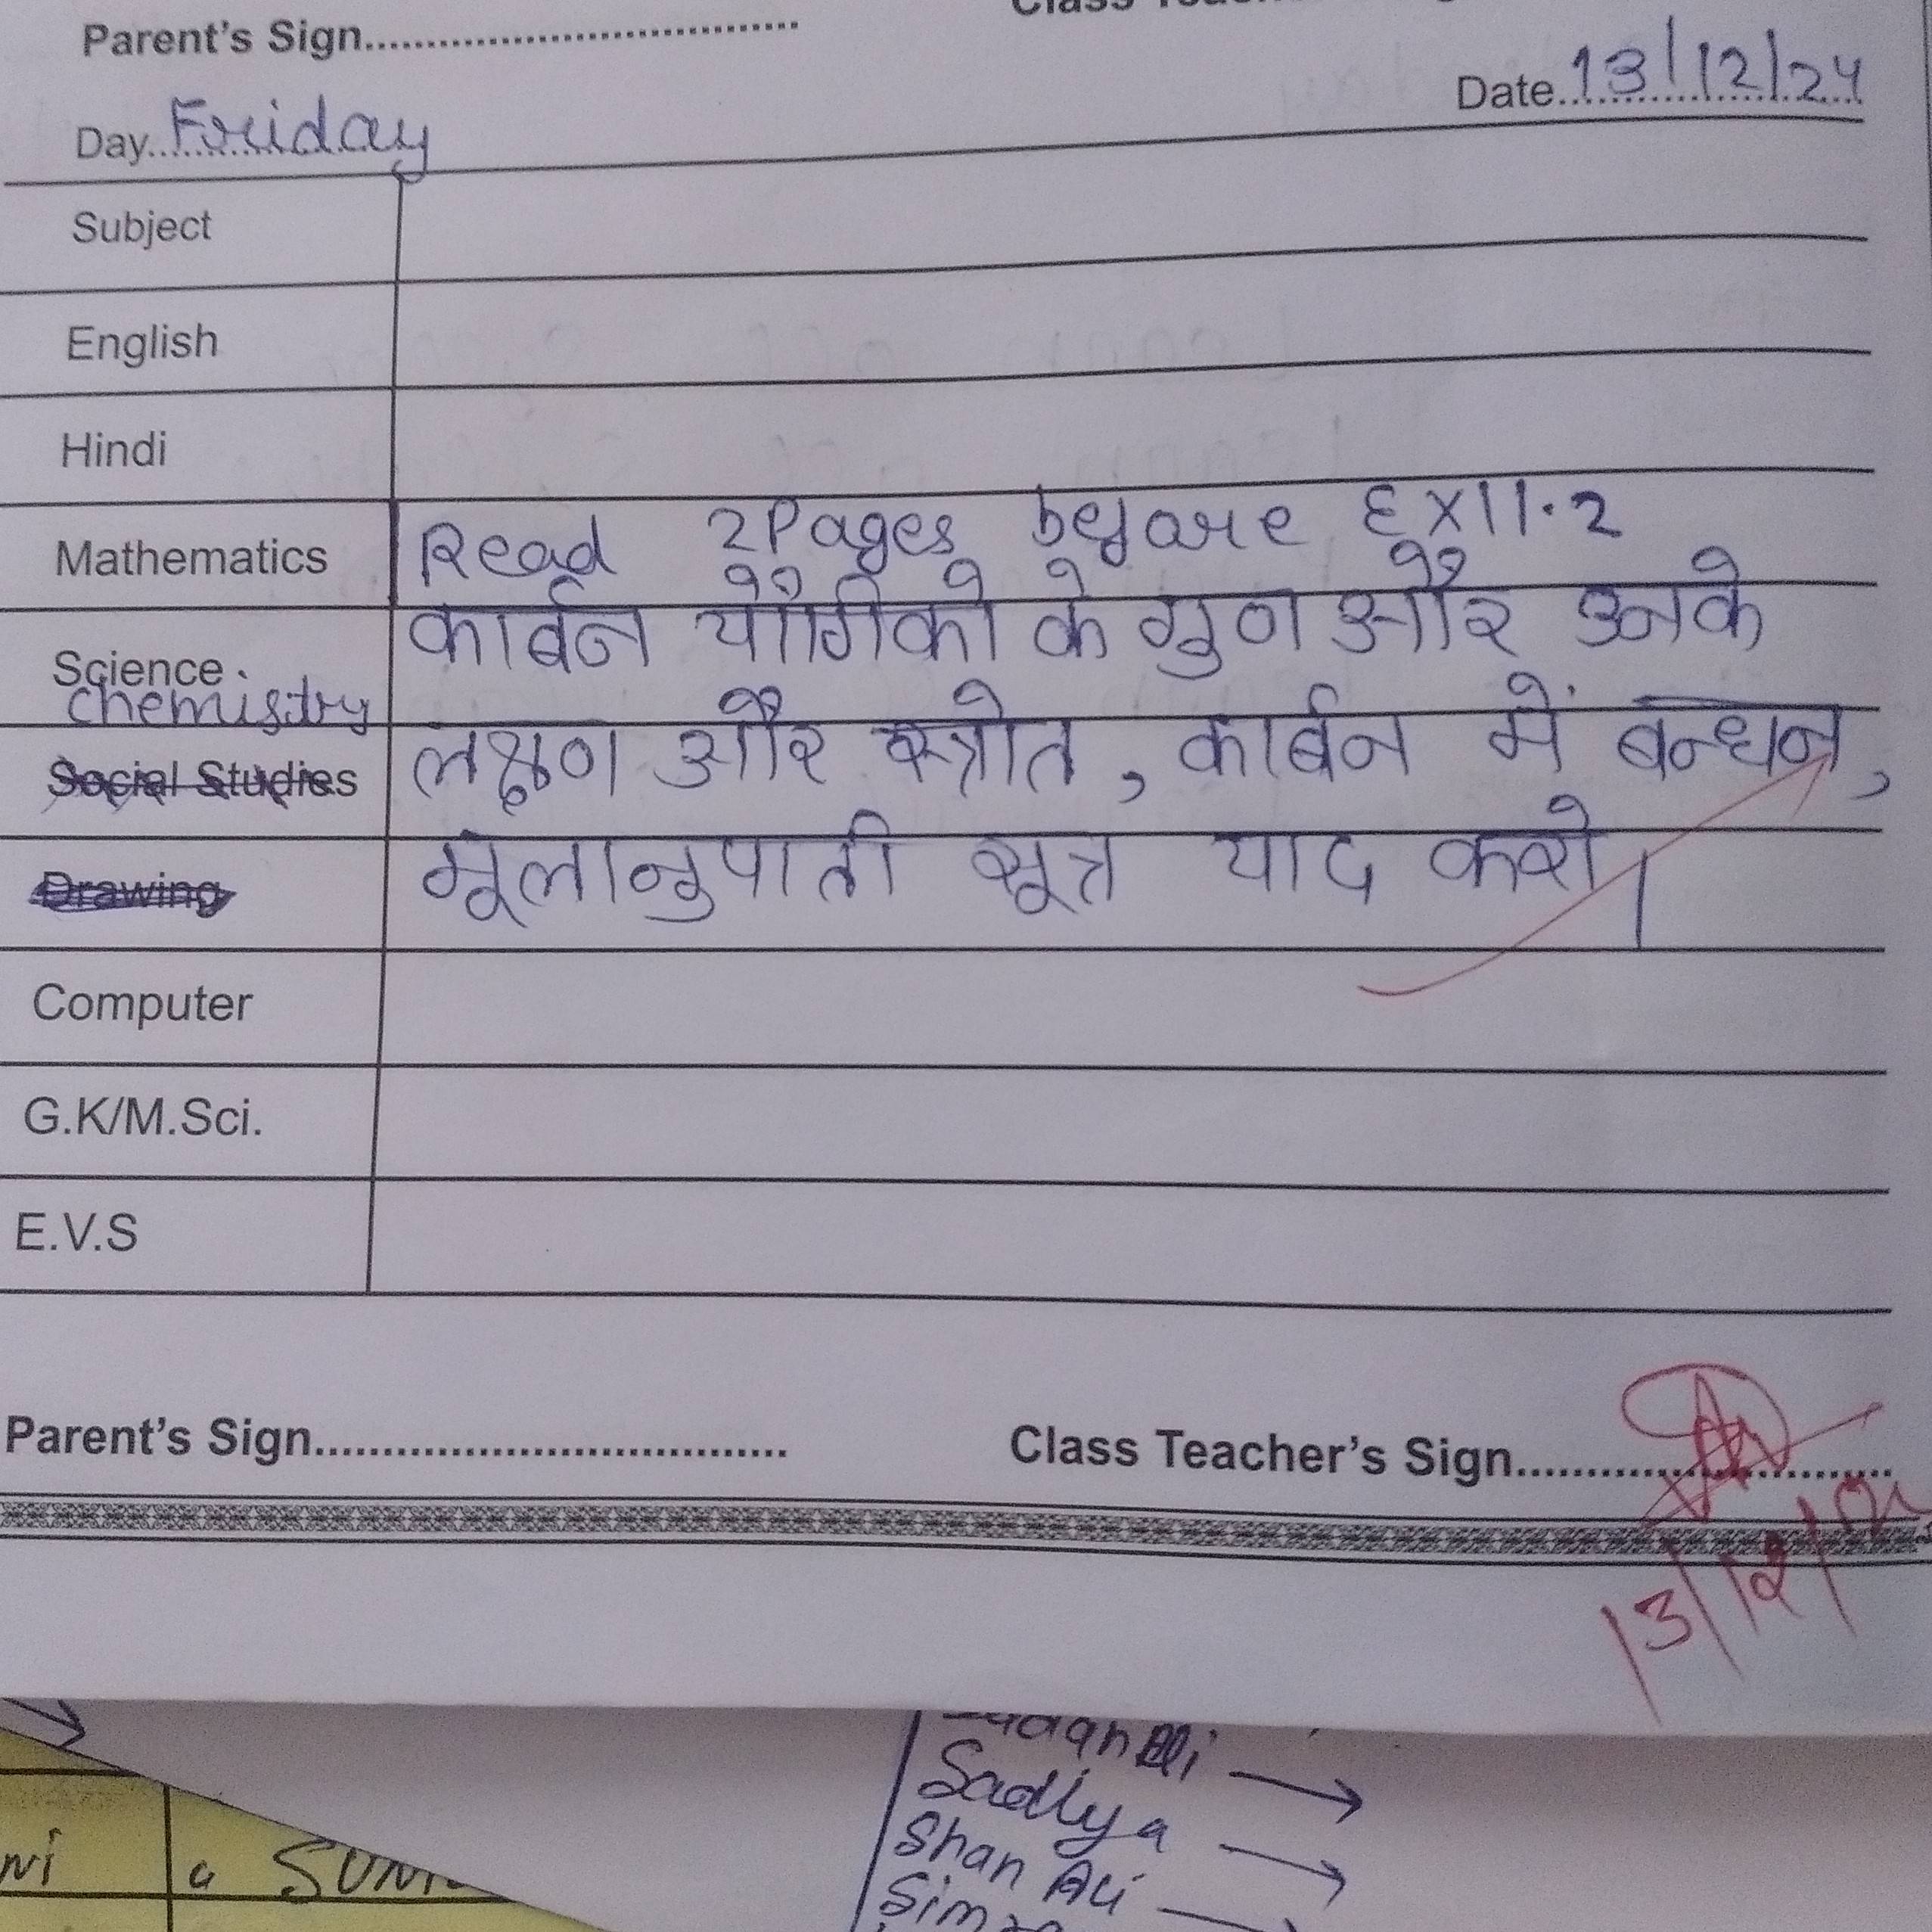 Parent's Sign
Date 13/12/24
Day Friday
Subject
English
Hindi
Mathematics Read 2Pages before Ex11.2
Science कार्बन यौगिको के गुण और उनके
chemistry
Social Studies लक्षण और स्त्रोत, कार्बन में बन्धन,
Drawing मूलानुपाती सूत्र याद करो।
Computer
G.K/M.Sci.
E.V.S
Parent's Sign
Class Teacher's Sign
13/12/
Sadhya
Shan Ali